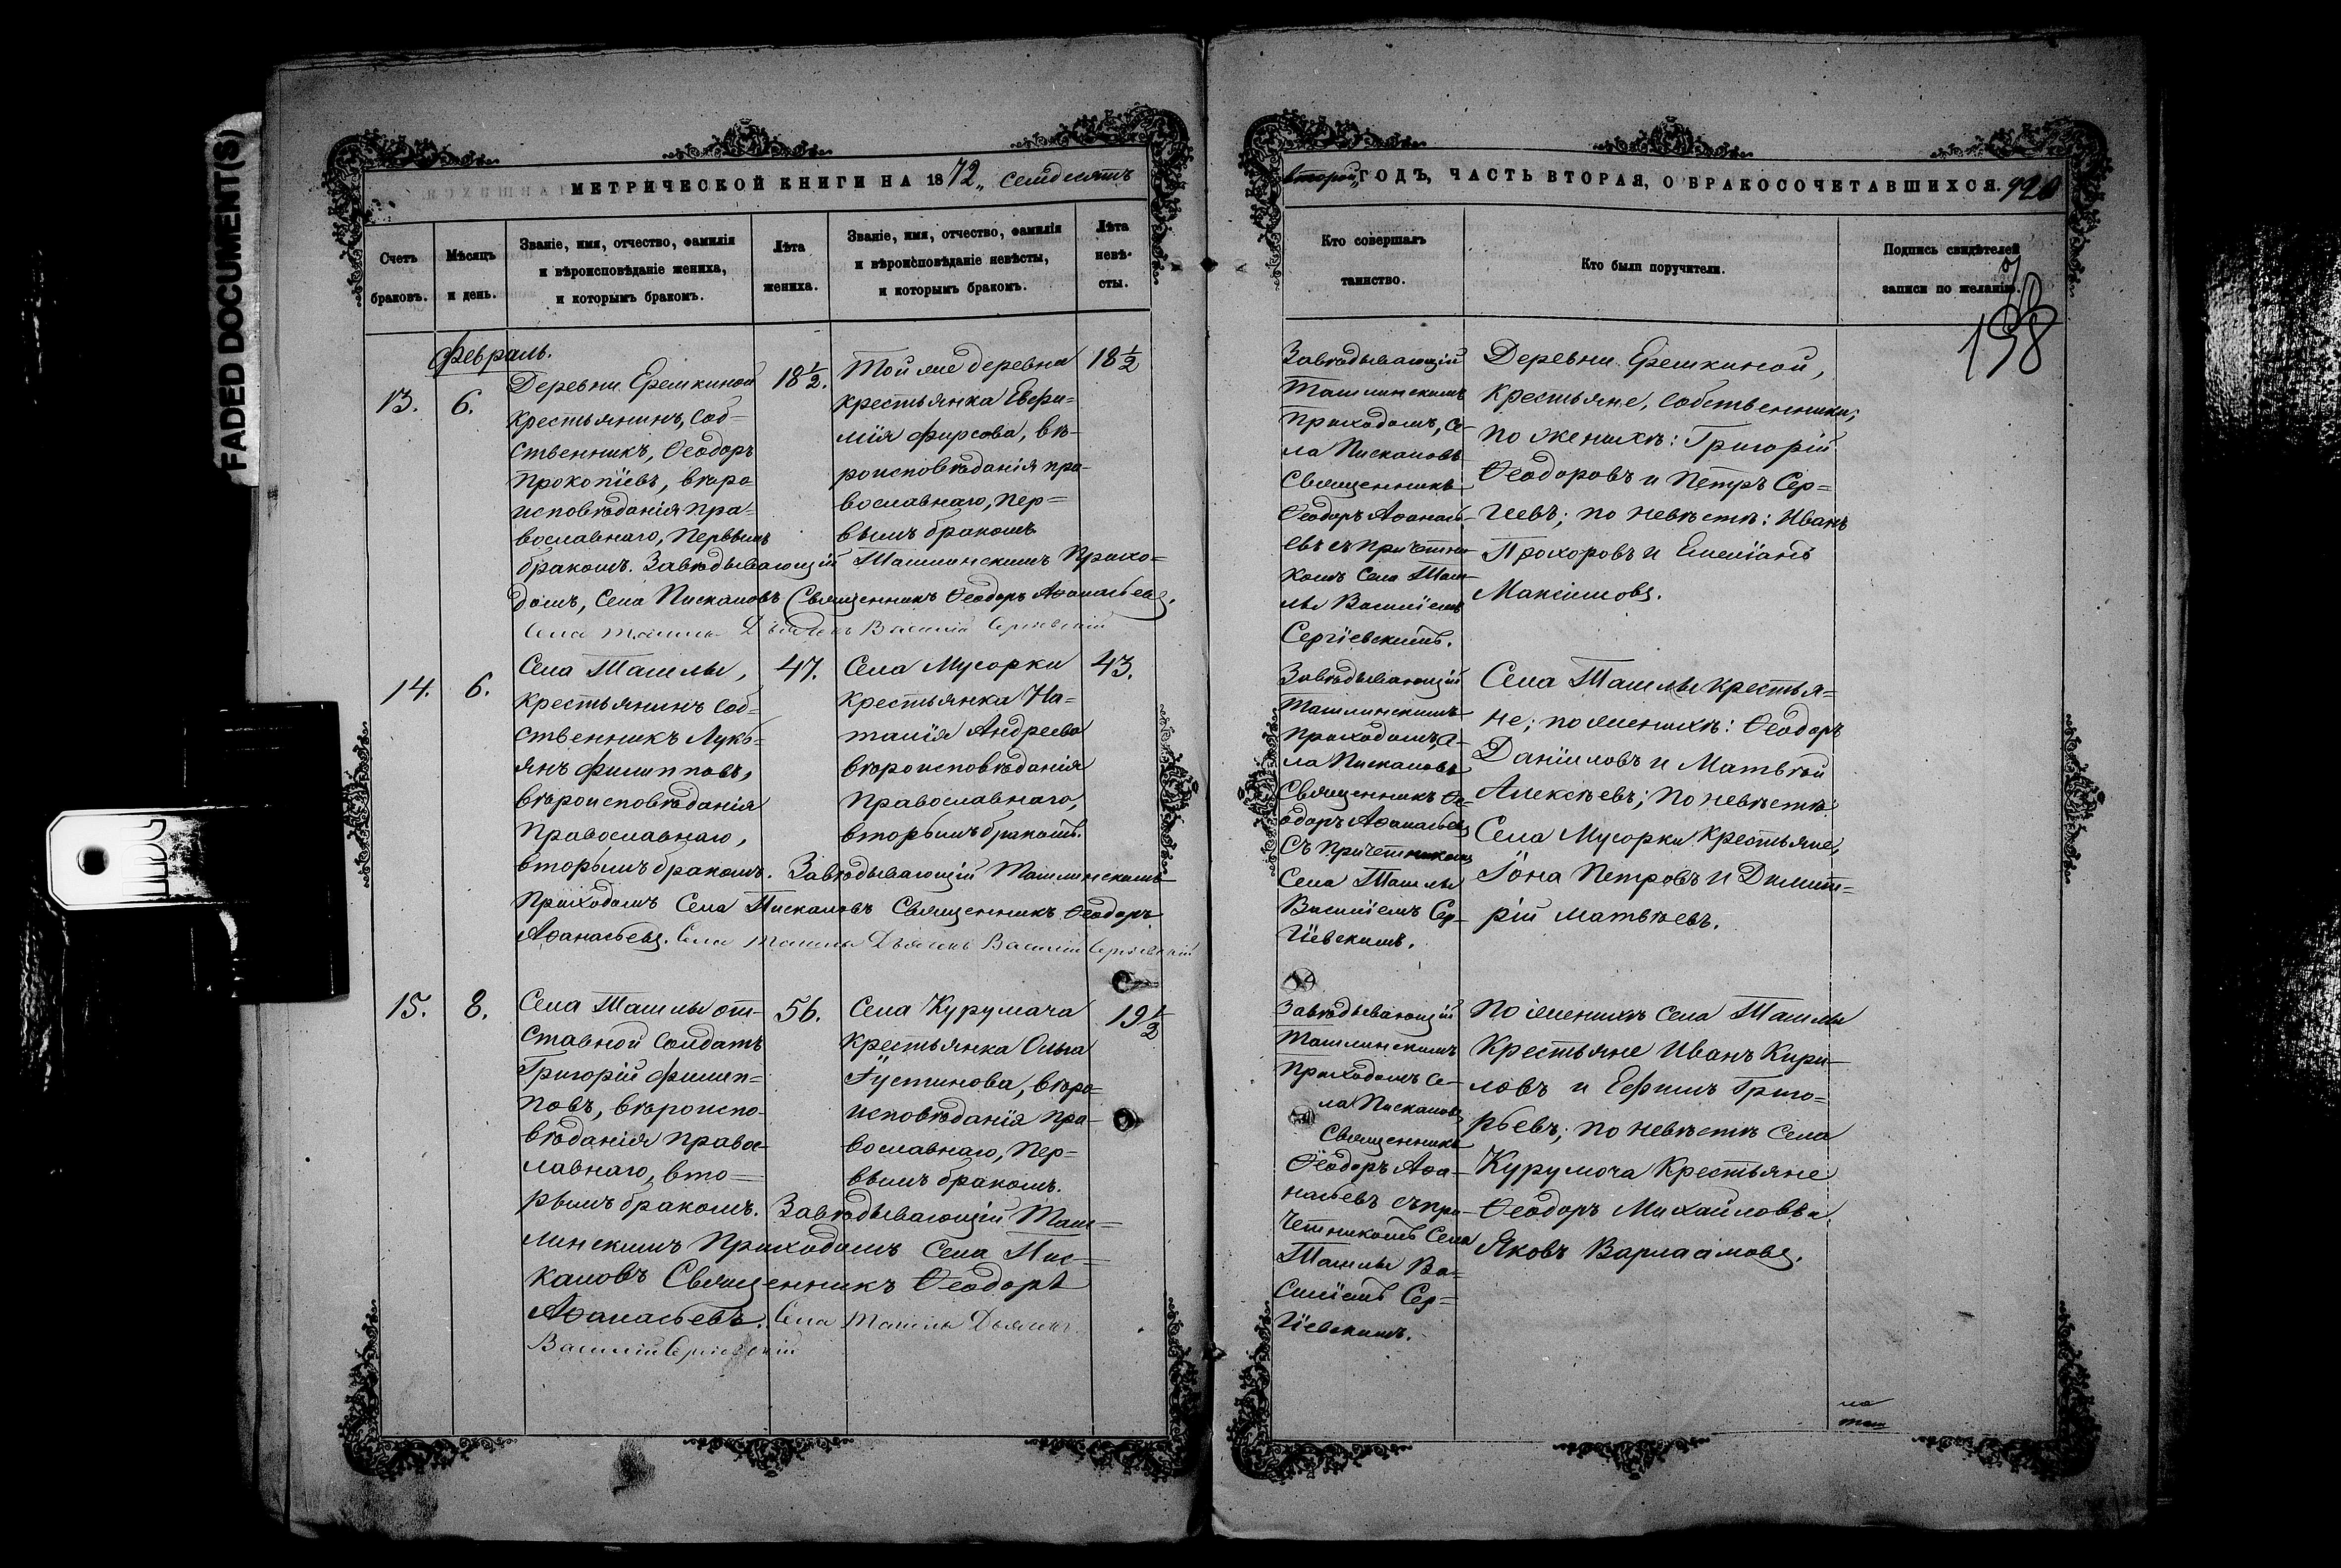 FADED DOCUMENT(S)
МЕТРИЧЕСКОЙ КНИГИ НА 1872,, семдесятъ
Счетъ браковъ.
Мѣсяцъ и день.
Званіе, имя, отчество, фамилія
и вѣроисповѣданіе жениха,
и которымъ бракомъ.
Лѣта жениха.
Званіе, имя, отчество, фамилія
и вѣроисповѣданіе невѣсты,
и которымъ бракомъ.
Лѣта невѣ-
сты.
Февраль.
13.
6.
Деревни Ерешкиной
крестьянинъ, соб=
ственникъ, Ѳеодоръ
Прокопіевъ, вѣро
исповѣданія пра=
вославнаго, первымъ
бракомъ. Завѣдывающій Ташлинскимъ прихо=
домъ, села Пискаловъ Священникъ Ѳеодоръ Аѳанасьевъ.
Села Ташлы Дьячекъ Василій Сергіевскій
18 1/2.
Той же деревни
крестьянка Евфи=
мія Фирсова, вѣ-
роисповѣданія пра-
вославнаго, пер=
вымъ бракомъ
18 1/2
14.
6.
Села Ташлы,
крестьянинъ соб-
ственникъ Лукь=
янъ Филипповъ,
вѣроисповѣданія
православнаго,
вторымъ бракомъ. Завѣдывающій Ташлинскимъ
приходомъ села Пискаловъ Священникъ Ѳеодоръ
Аѳанасьевъ. Села Ташлы Дьячекъ Василій Сергіевскій
47.
Села Мусорки
крестьянка На-
талія Андреева
вѣроисповѣданія
православнаго,
вторымъ бракомъ.
43.
15.
8.
Села Ташлы от-
ставной солдатъ
Григорій Филип=
повъ, вѣроиспо-
вѣданія правос-
лавнаго, вто=
рымъ бракомъ. Завѣдывающій Таш=
линскимъ приходомъ села Пис=
каловъ Священникъ Ѳеодоръ
Аѳанасьевъ. Села Ташлы Дьячекъ
Василій Сергіевскій
56.
Села Курумоча
крестьянка Ольга
Іустинова, вѣро-
исповѣданія пра-
вославнаго, пер=
вымъ бракомъ.
19 1/2
второй,, ГОДЪ, ЧАСТЬ ВТОРАЯ, О БРАКОСОЧЕТАВШИХСЯ.
Кто совершалъ
таинство.
Кто были поручители.
Подпись свидѣтелей
записи по желанію.
198
Завѣдывающій
Ташлинскимъ
приходомъ, се-
ла Пискаловъ
Священникъ
Ѳеодоръ Аѳанась-
евъ съ причетни-
комъ села Таш-
лы Василіемъ
Сергіевскимъ.
Деревни Ерешкиной,
крестьяне, собственники;
по женихѣ: Григорій
Ѳеодоровъ и Петръ Сер=
гіевъ; по невѣстѣ: Иванъ
Прохоровъ и Емеліанъ
Максимовъ.
Завѣдывающій
Ташлинскимъ
приходомъ, се-
ла Пискаловъ
Священникъ Ѳе-
одоръ Аѳанасьевъ
съ причетникомъ
села Ташлы
Василіемъ Сер-
гіевскимъ.
Села Ташлы крестья=
не; по женихѣ: Ѳеодоръ
Даніиловъ и Матвѣй
Алексѣевъ; по невѣстѣ:
Села Мусорки крестьяне,
Іона Петровъ и Димит=
рій Матвѣевъ.
Завѣдывающій
Ташлинскимъ
приходомъ се-
ла Пискаловъ
Священникъ
Ѳеодоръ Аѳа-
насьевъ съ при-
четникомъ села
Ташлы Ва=
силіемъ Сер=
гіевскимъ.
По женихѣ села Ташлы
крестьяне Иванъ Кири-
ловъ и Ефимъ Григо=
рьевъ; по невѣстѣ села
Курумоча крестьяне
Ѳеодоръ Михайловъ и
Яковъ Варлаамовъ.